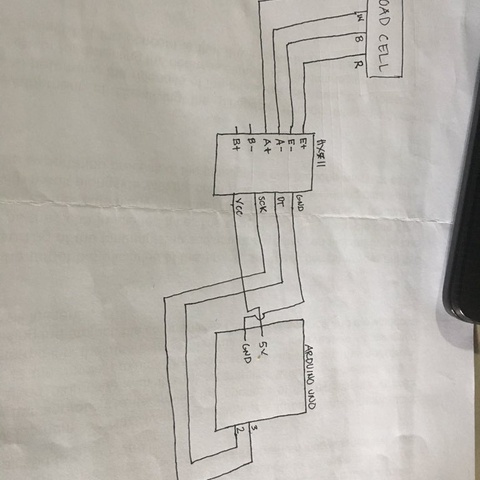 OAD CELL
W
B
R
HX711
E+
E-
A-
A+
B-
B+
GND
DT
SCK
VCC
ARDUINO UNO
5V
GND
3
2